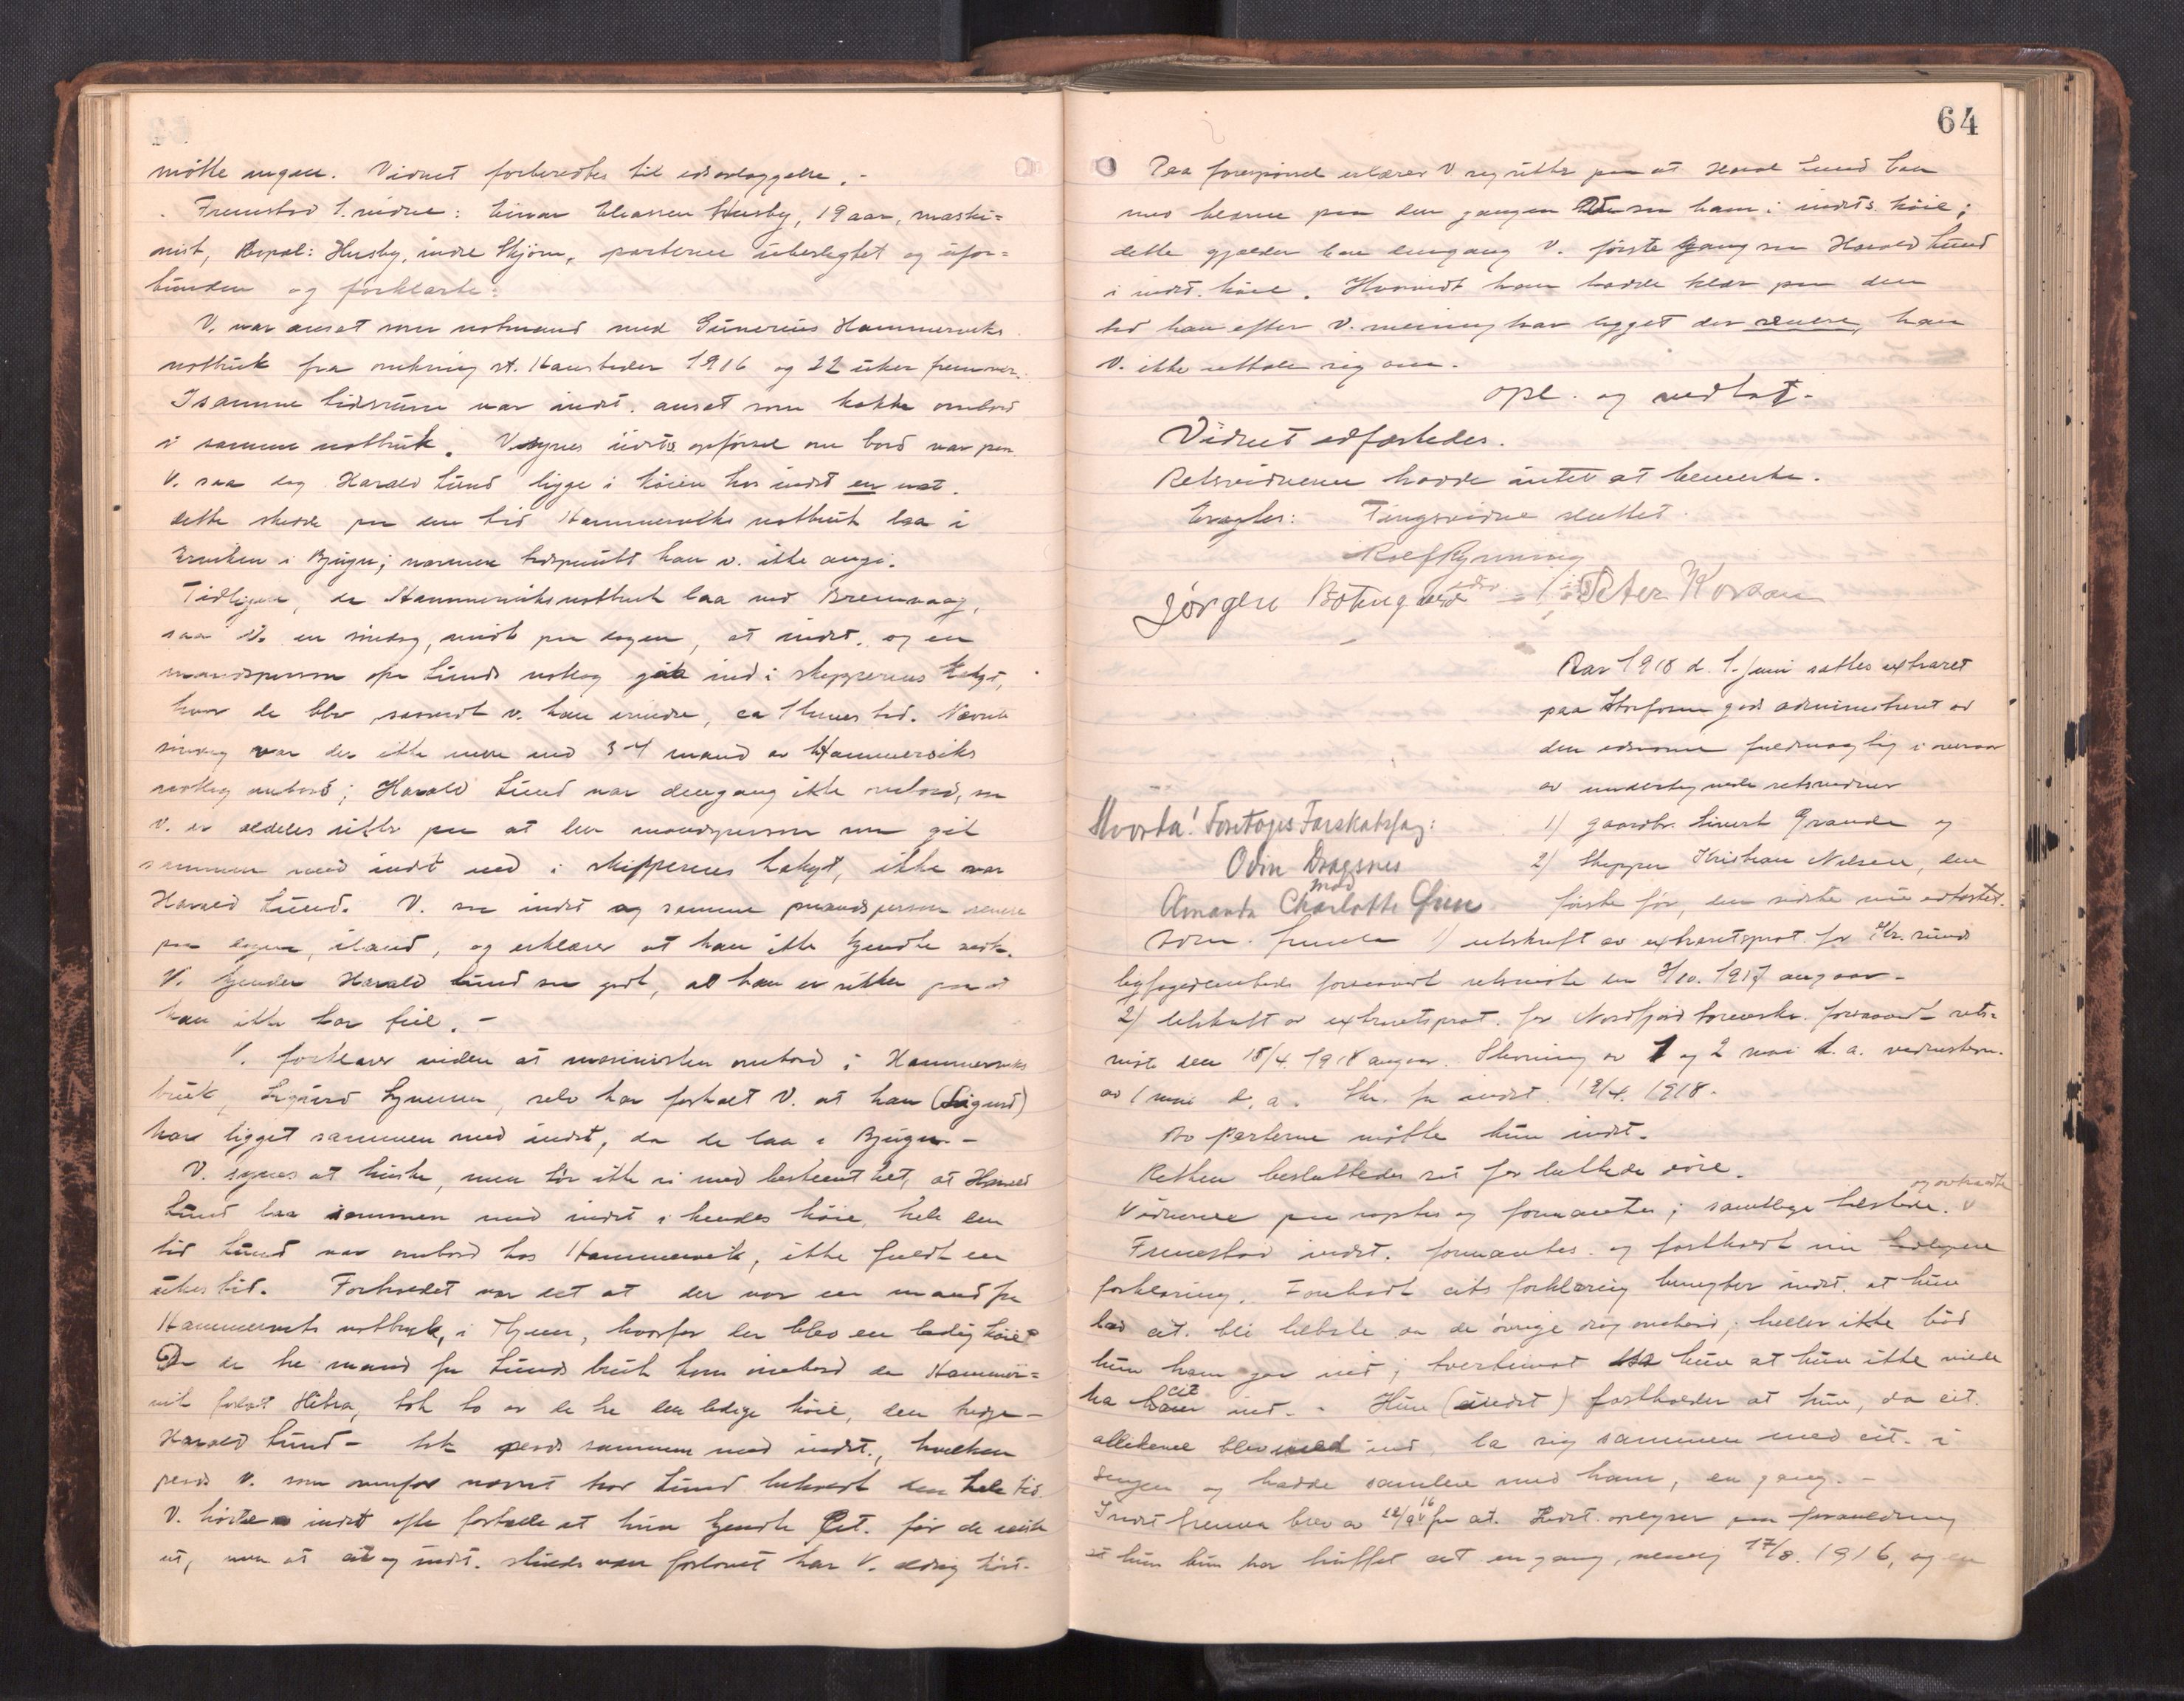 møtte ingen. Vidnet forberedtes til edsavlæggelse. -
Fremstod 1. vidne: Einar Eliassen Husby, 19 aar, maski=
nist, Bopæl: Husby, indre Stjørn, parterne ubeslegtet og ufor=
bunden og forklarte:
V. var ansat som notmand med Gunerius Hammerviks
notbruk fra omkring st. Hanstider 1916 og 22 uker fremover.
I samme tidsrum var indst. ansat som kokke ombord
i samme notbruk. V. synes indsts opførsel om bord var pen
V. saa dog Harald Lund ligge i køien hos indst en nat.
dette skedde paa den tid Hammerviks notbruk laa i
i Bjugn; nærmere tidspunkt kan v. ikke angi.
Tidligere, da Hammerviks notbruk laa ved Bremvaag,
saa V. en søndag, midt paa dagen, at indst. og en
mandsperson av Lunds notlag gik ind i skipperens lukaf,
hvor de blev saavidt v. kan erindre, ca 1 times tid. Nævnte
søndag var der ikke mere end 3-4 mand av Hammerviks
notlag ombord; Harald Lund var dengang ikke ombord, saa
V. er aldeles sikker paa at den mandsperson som gik
sammen med indst ned i skipperens lukaf, ikke var
Harald Lund. V. saa indst og samme mandsperson senere
paa dagen, iland, og erklærer at han ikke kjendte vedk.
V. kjender Harald Lund saa godt, at han er sikker paa at
han ikke tar feil. -
V. forklarer videre at maskinisten ombord i Hammerviks
bruk, Sigurd, selv har fortalt V. at han (Sigurd)
har ligget sammen med indst, da de laa i Bjugn. -
V. synes at huske, men tør ikke si med bestemthet, at Harald
Lund laa sammen med indst i hendes køie hele den
tid Lund var ombord hos Hammervik, ikke fuldt en
ukes tid. Forholdet var det at der var en mand fra
Hammerviks notbruk, i, hvorfor der blev en ledig køie
Da de tre mand fra Lunds bruk kom ombord da Hammer=
vik forlot Hitra, tok to av de tre den ledige køie, den tredje -
Harald Lund - tok plads sammen med indst., hvilken
plads V. som ovenfor nævnt tror Lund beholdt den hele tid.
V. hørte indst ofte fortælle at hun kjendte Cit. før de reiste
ut, men at cit og indst. skulde være forlovet har V. aldrig hørt.
64
Paa forespørsel erklærer V sig sikker paa at Harald Lund laa
uten klærne paa den gangen V. saa ham i indsts køie;
dette gjælder den dengang V. første gang saa Harald Lund
i indst. køie. Hvorvidt han hadde klær paa den
tid han efter V. mening har ligget der senere, kan
V. ikke uttale sig om.
opl. og vedtat.
Vidnet edfæstedes.
Retsvidnerne hadde intet at bemerke.
Eragtes: Tingsvidne sluttet.
Rolf Rynning
Jørgen Botngaard Peter Korsan
Aar 1918 d. 1. juni sattes extraret
paa Storfosen gods administreret av
den edsvorne fuldmægtig i nærvær
av undertegnede retsvidner
1) gaardbr. Sivert Grande og
2) Skipper Kristian Nilsen, den
første før, den sidste nu edfæstet.
Hvorda! Foretages Farskabssag:
Odin Dragsnes
mod
Amanda Charlotte
Dom. fremla 1) utskrift av extraretsprot. for Kr.sunds
byfogedembede forsaavidt retsmøte den 2/10. 1917 angaar -
2) Utskrift av extraretsprot. for Nordfjord sorenskr. forsaavidt rets=
møte den 18/4. 1918 angaar. Stevning av 1 og 2 mai d. a. vidnestevn.
av 1 mai d. a. Skr. fra indst. 19/4. 1918.
Av parterne møtte kun indst.
Retten besluttedes sat for lukkede døre.
Vidnerne paaroptes og formantes; samtlige tilstede. og avtraadte
Fremstod indst. formantes. og fastholdt sin tidligere
forklaring. Foreholdt cits forklaring benegter indst. at hun
bad cit. bli tilbake da de øvrige drog ombord; heller ikke bød
hun ham gaa ind; tvertimot sa hun at hun ikke vilde
ha ham cit ind. - Hun (indst) fastholder at hun, da cit.
allikevel blev med ind, la sig sammen med cit. i
sengen og hadde samleie med ham, en gang. -
Indst brev av 12/9 16 fra cit. Indst. oplyser paa foranledning
at hun kun har truffet cit en gang, nemlig 17/8. 1916, og en